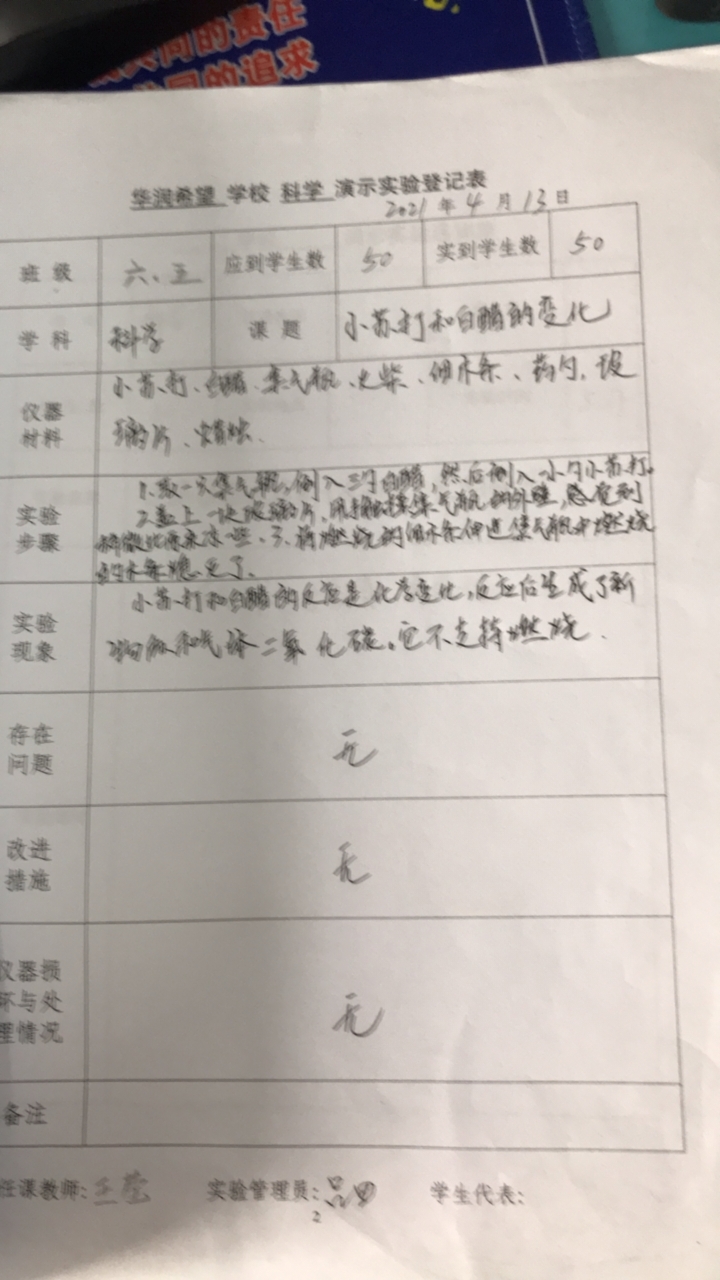 共同的责任
共同的追求
华润希望 学校 科学 演示实验登记表
2021 年 4 月 13 日
班 级 六、五 应到学生数 50 实到学生数 50
学 科 科学 课 题 小苏打和白醋的变化
仪器
材料
小苏打、白醋、集气瓶、火柴、细木条、药勺、玻
璃片、蜡烛.
实验
步骤
1.取一只集气瓶,倒入三勺白醋,然后倒入一小勺小苏打.
2.盖上一块玻璃片,用手触摸集气瓶的外壁,感觉到
比原来冷一些、3、将燃烧的细木条伸进集气瓶中燃烧
的木条熄灭了.
实验
现象
小苏打和白醋的反应是化学变化,反应后生成了新
物质和气体二氧化碳。它不支持燃烧.
存在
问题
无
改进
措施
无
仪器损
坏与处
理情况
无
备注
任课教师: 实验管理员: 学生代表:
2